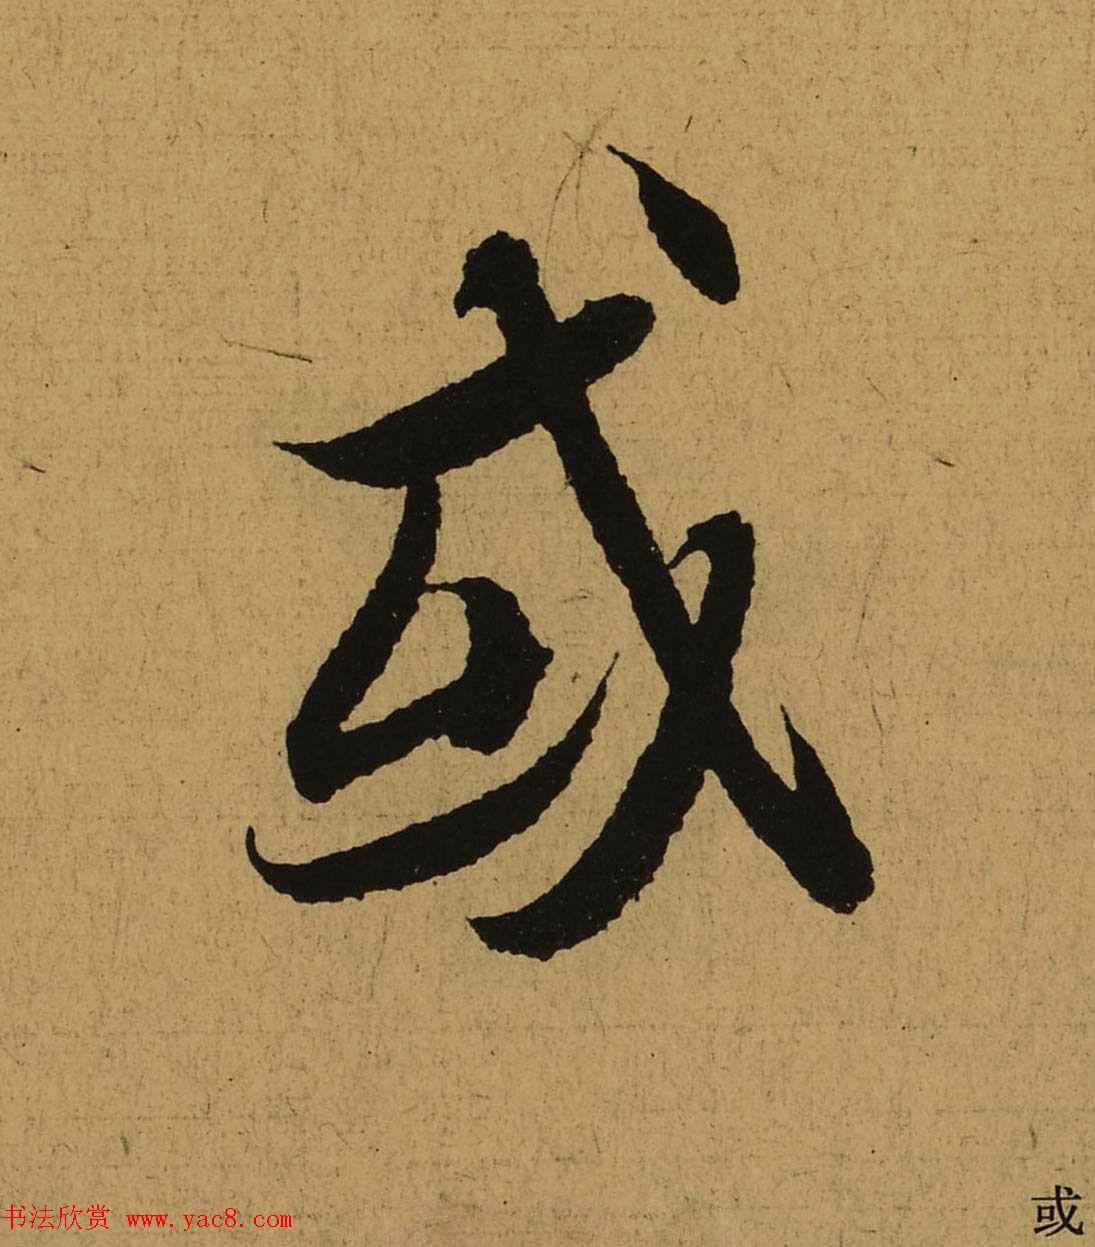 或
或
书法欣赏 www.yac8.com